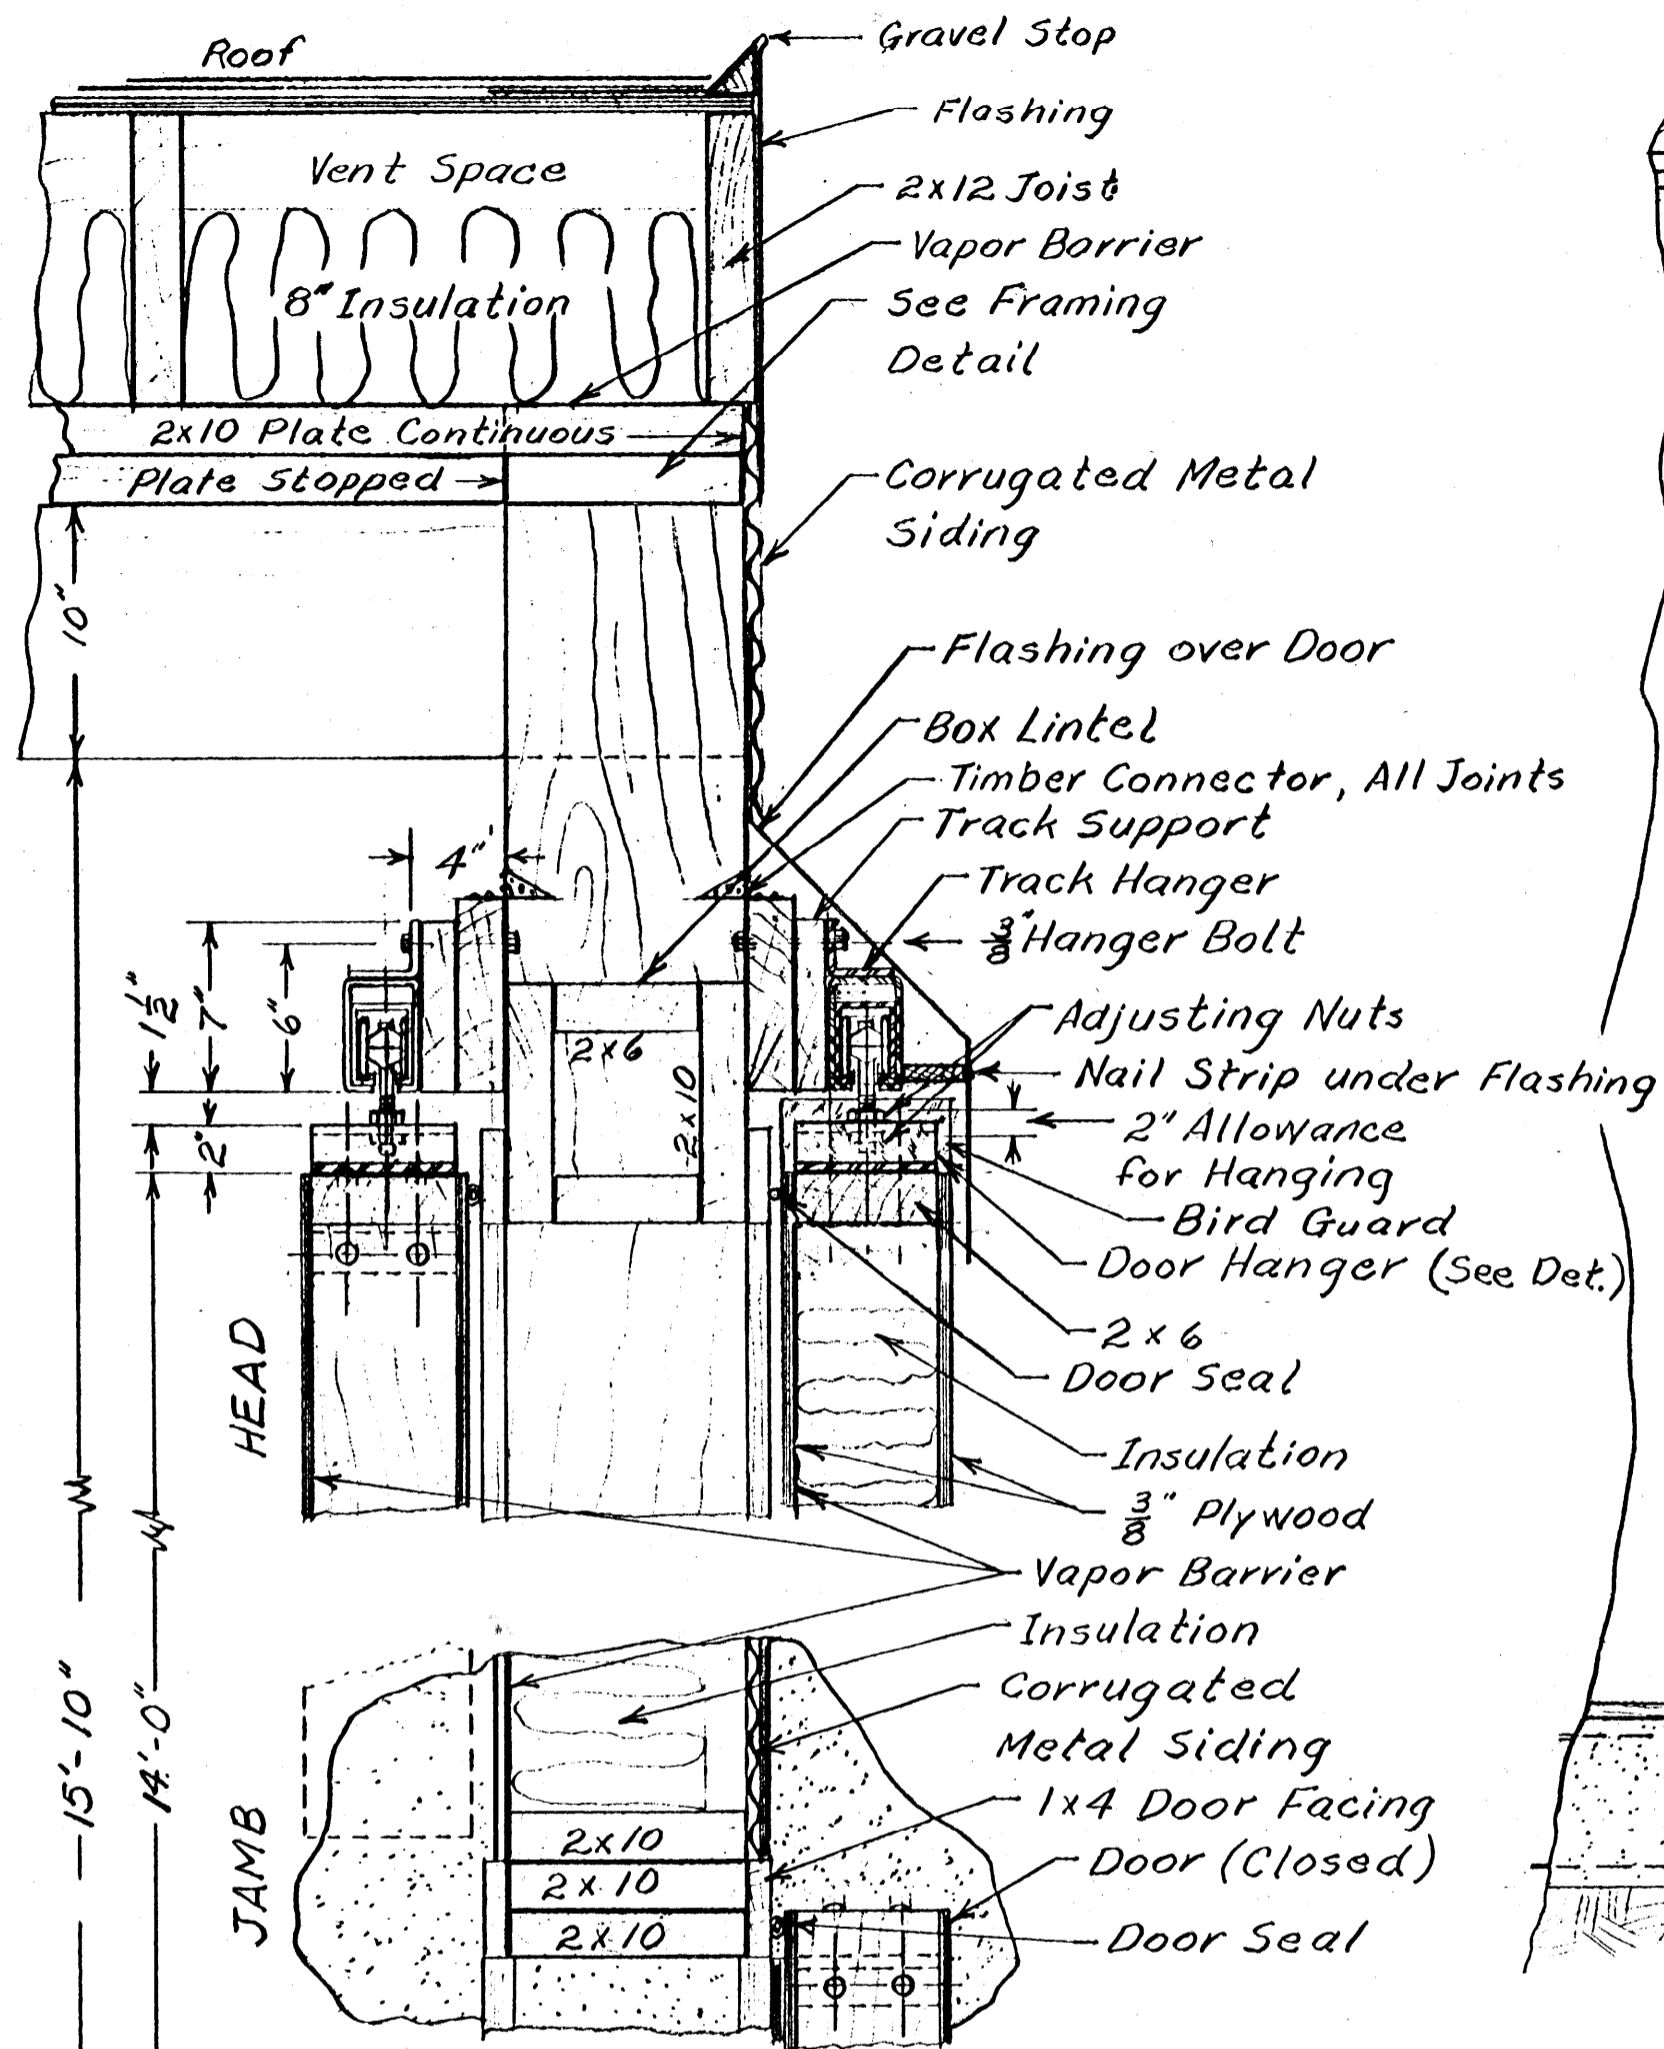 Roof
Gravel Stop
Flashing
Vent Space
2x12 Joist
Vapor Barrier
8" Insulation
See Framing
Detail
2x10 Plate Continuous
Plate Stopped
Corrugated Metal
Siding
10"
Flashing over Door
Box Lintel
Timber Connector, All Joints
Track Support
4"
Track Hanger
3/8" Hanger Bolt
1 1/2"
7"
6"
Adjusting Nuts
2x6
Nail Strip under Flashing
2x10
2" Allowance
for Hanging
2"
Bird Guard
Door Hanger (See Det.)
2 x 6
Door Seal
HEAD
Insulation
3/8" Plywood
Vapor Barrier
Insulation
Corrugated
Metal Siding
15'-10"
14'-0"
1x4 Door Facing
2x10
Door (Closed)
2x10
JAMB
2x10
Door Seal